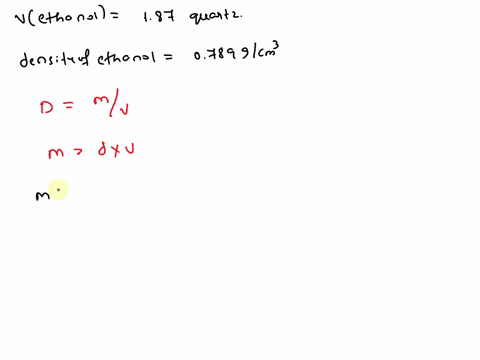 v(ethanol) = 1.87 quartz.
density of ethanol = 0.789 g/cm³
D = m/v
m = d x v
m